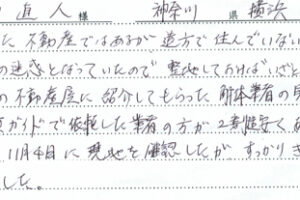 直人 様 神奈川 県 横浜
た 不動産ではあるが 遠方で 住んでいない
の迷惑となっていたので 更地しておけばいざと
の 不動産屋に 紹介してもらった 解体業者の見
ガイドで依頼した業者の方が 2割程安く
11月4日に 現地を確認したが すっかりき
した。